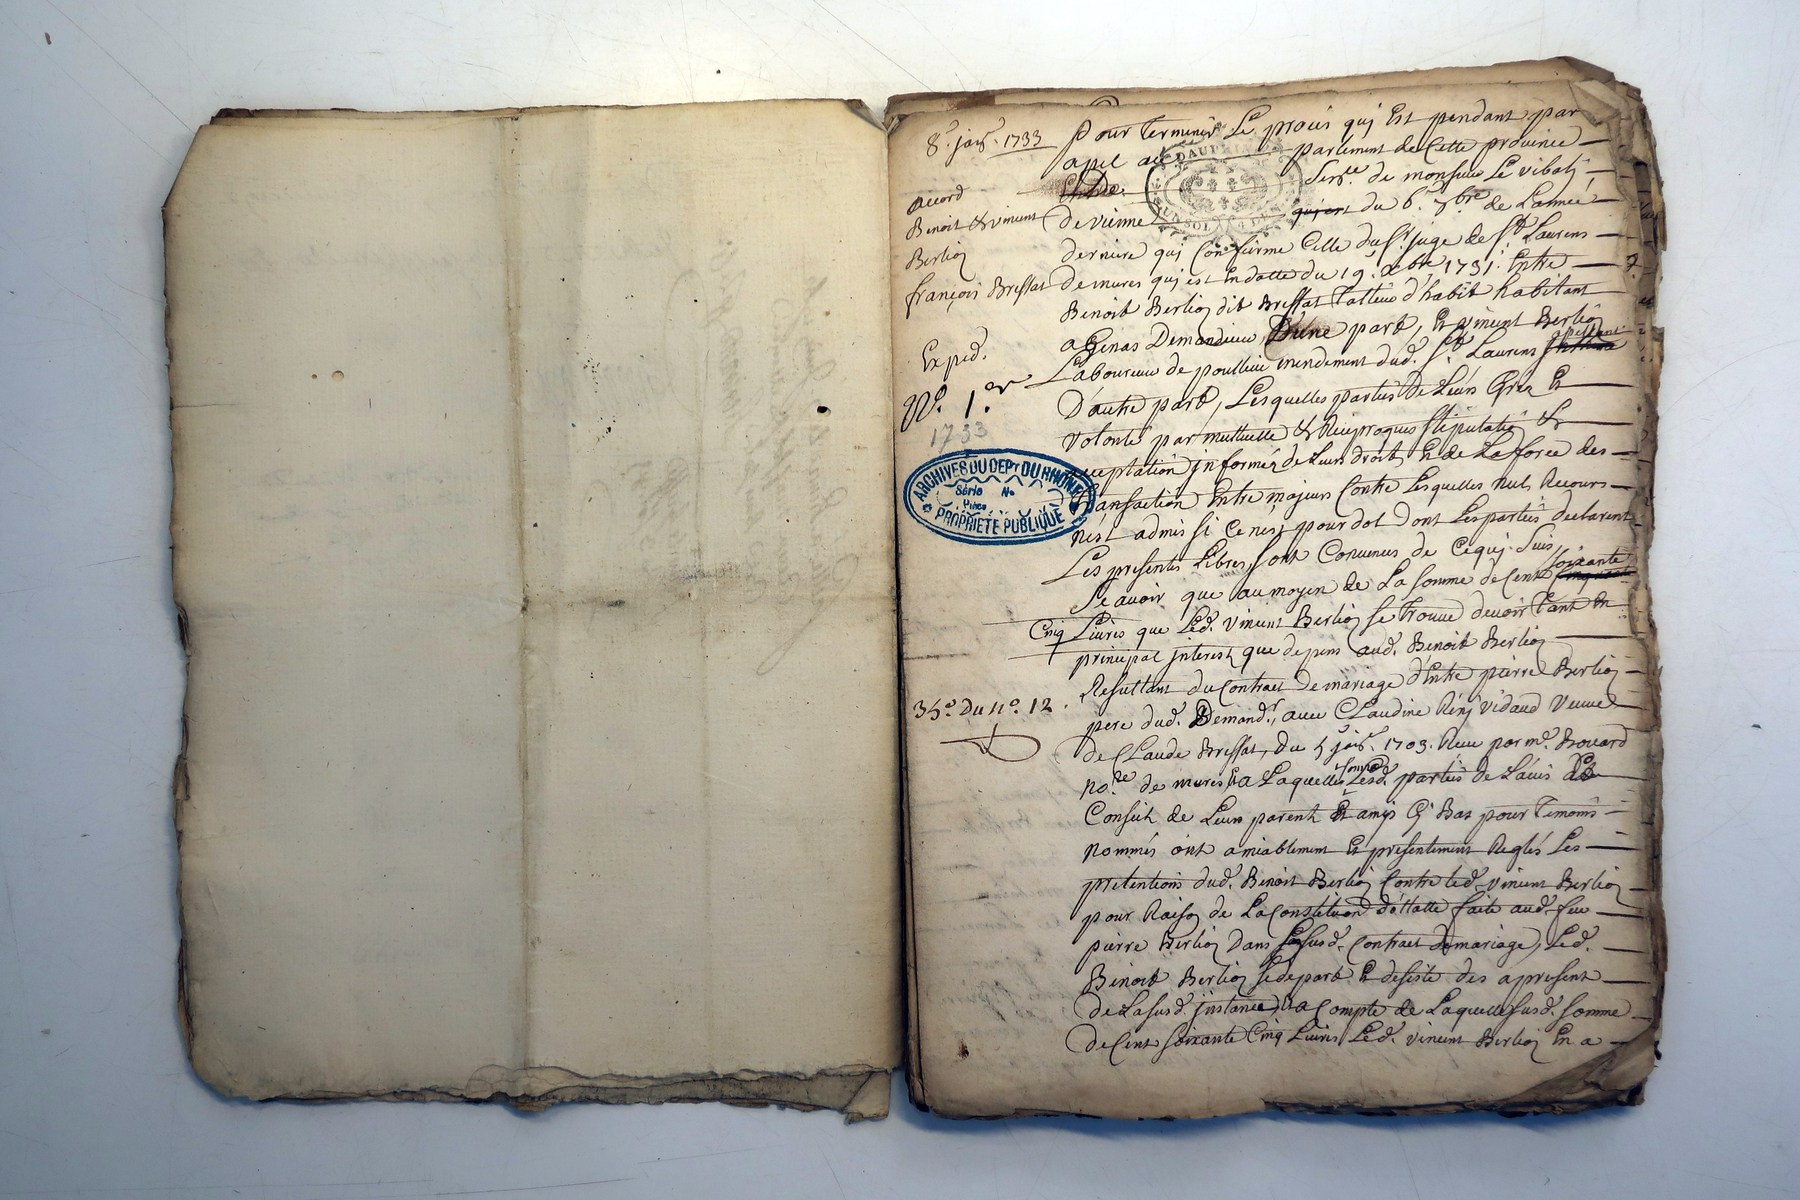 8.e janr. 1733
accord
Benoit & vincent
Berlioz
françois Bressat
Exped.
N.o 1.er
1733
ARCHIVES DU DEPT DU RHONE
Série No
Pièce
PROPRIETE PUBLIQUE
35.e Du n.o 12.
DAUPHINE
UN SOL 4 D
Pour Terminer Le procés qui Est pendant par
apel au parlement de Cette province
de monsieur Le vibaly
de vienne du 6.e 7bre de L'année
derniere qui Confirme Celle du Sr. juge de St. Laurens
de mures qui est En datte du 19.e xbre 1731. Entre
Benoit Berlioz dit Bressat Tailleur d'habit habitant
a Genas Demandeur D'une part, Et vincent Berlioz
Laboureur de poullieu mendement dud. St. Laurens
D'autre part, Lesquelles parties de Leurs Grez Et
volonté par mutuelle & Reciproques stipulatio &
acceptation informéz de Leurs droits Et de La force des
Transaction Entre majeurs Contre Lesquelles nuls Recours
n'est admis si Ce n'est pour dol dont Les parties declarent
Les presentes Libres, sont Convenues de Ce qui suis,
soixante
Scavoir que au moyen de La somme de Cent
Cinq Livres que Led. vincent Berlioz se Trouve devoir Tant En
principal interest que depens aud. Benoit Berlioz
Resultant du Contract de mariage d'Entre pierre Berlioz
pere dud. Demandr., avec Claudine Réné vidaud veuve
de Claude Bressat, du 5 janr. 1703. Receu par me. Brouard
no.re de mures, Et a Laquelle somme Lesd. parties de L'avis Et
Conseil de Leurs parents Et amis Cy Bas pour Temoins
nommés ont amiablement Et presentement Reglés Les
pretentions dud. Benoit Berlioz Contre led. vincent Berlioz
pour Raison de La Constitution faite aud. feu
pierre Berlioz dans Le susd. Contract de mariage, Led.
Benoit Berlioz se depart Et desiste des a present
de La susd. instance, Et a Compte de Laquelle susd. somme
de Cent Soixante Cinq Livres Led. vincent Berlioz En a